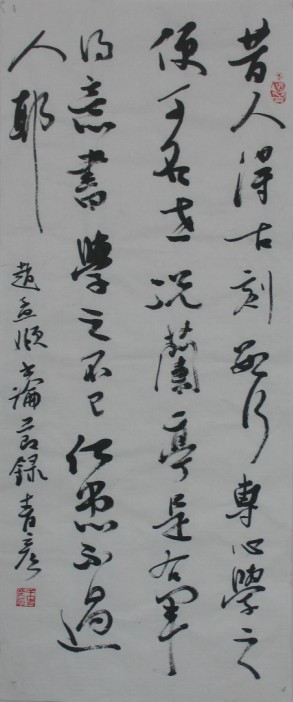 昔人得古刻數行專心學之
便可名世況蘭亭是右軍
得意書學之不已何患不過
人耶
趙孟頫書論節錄